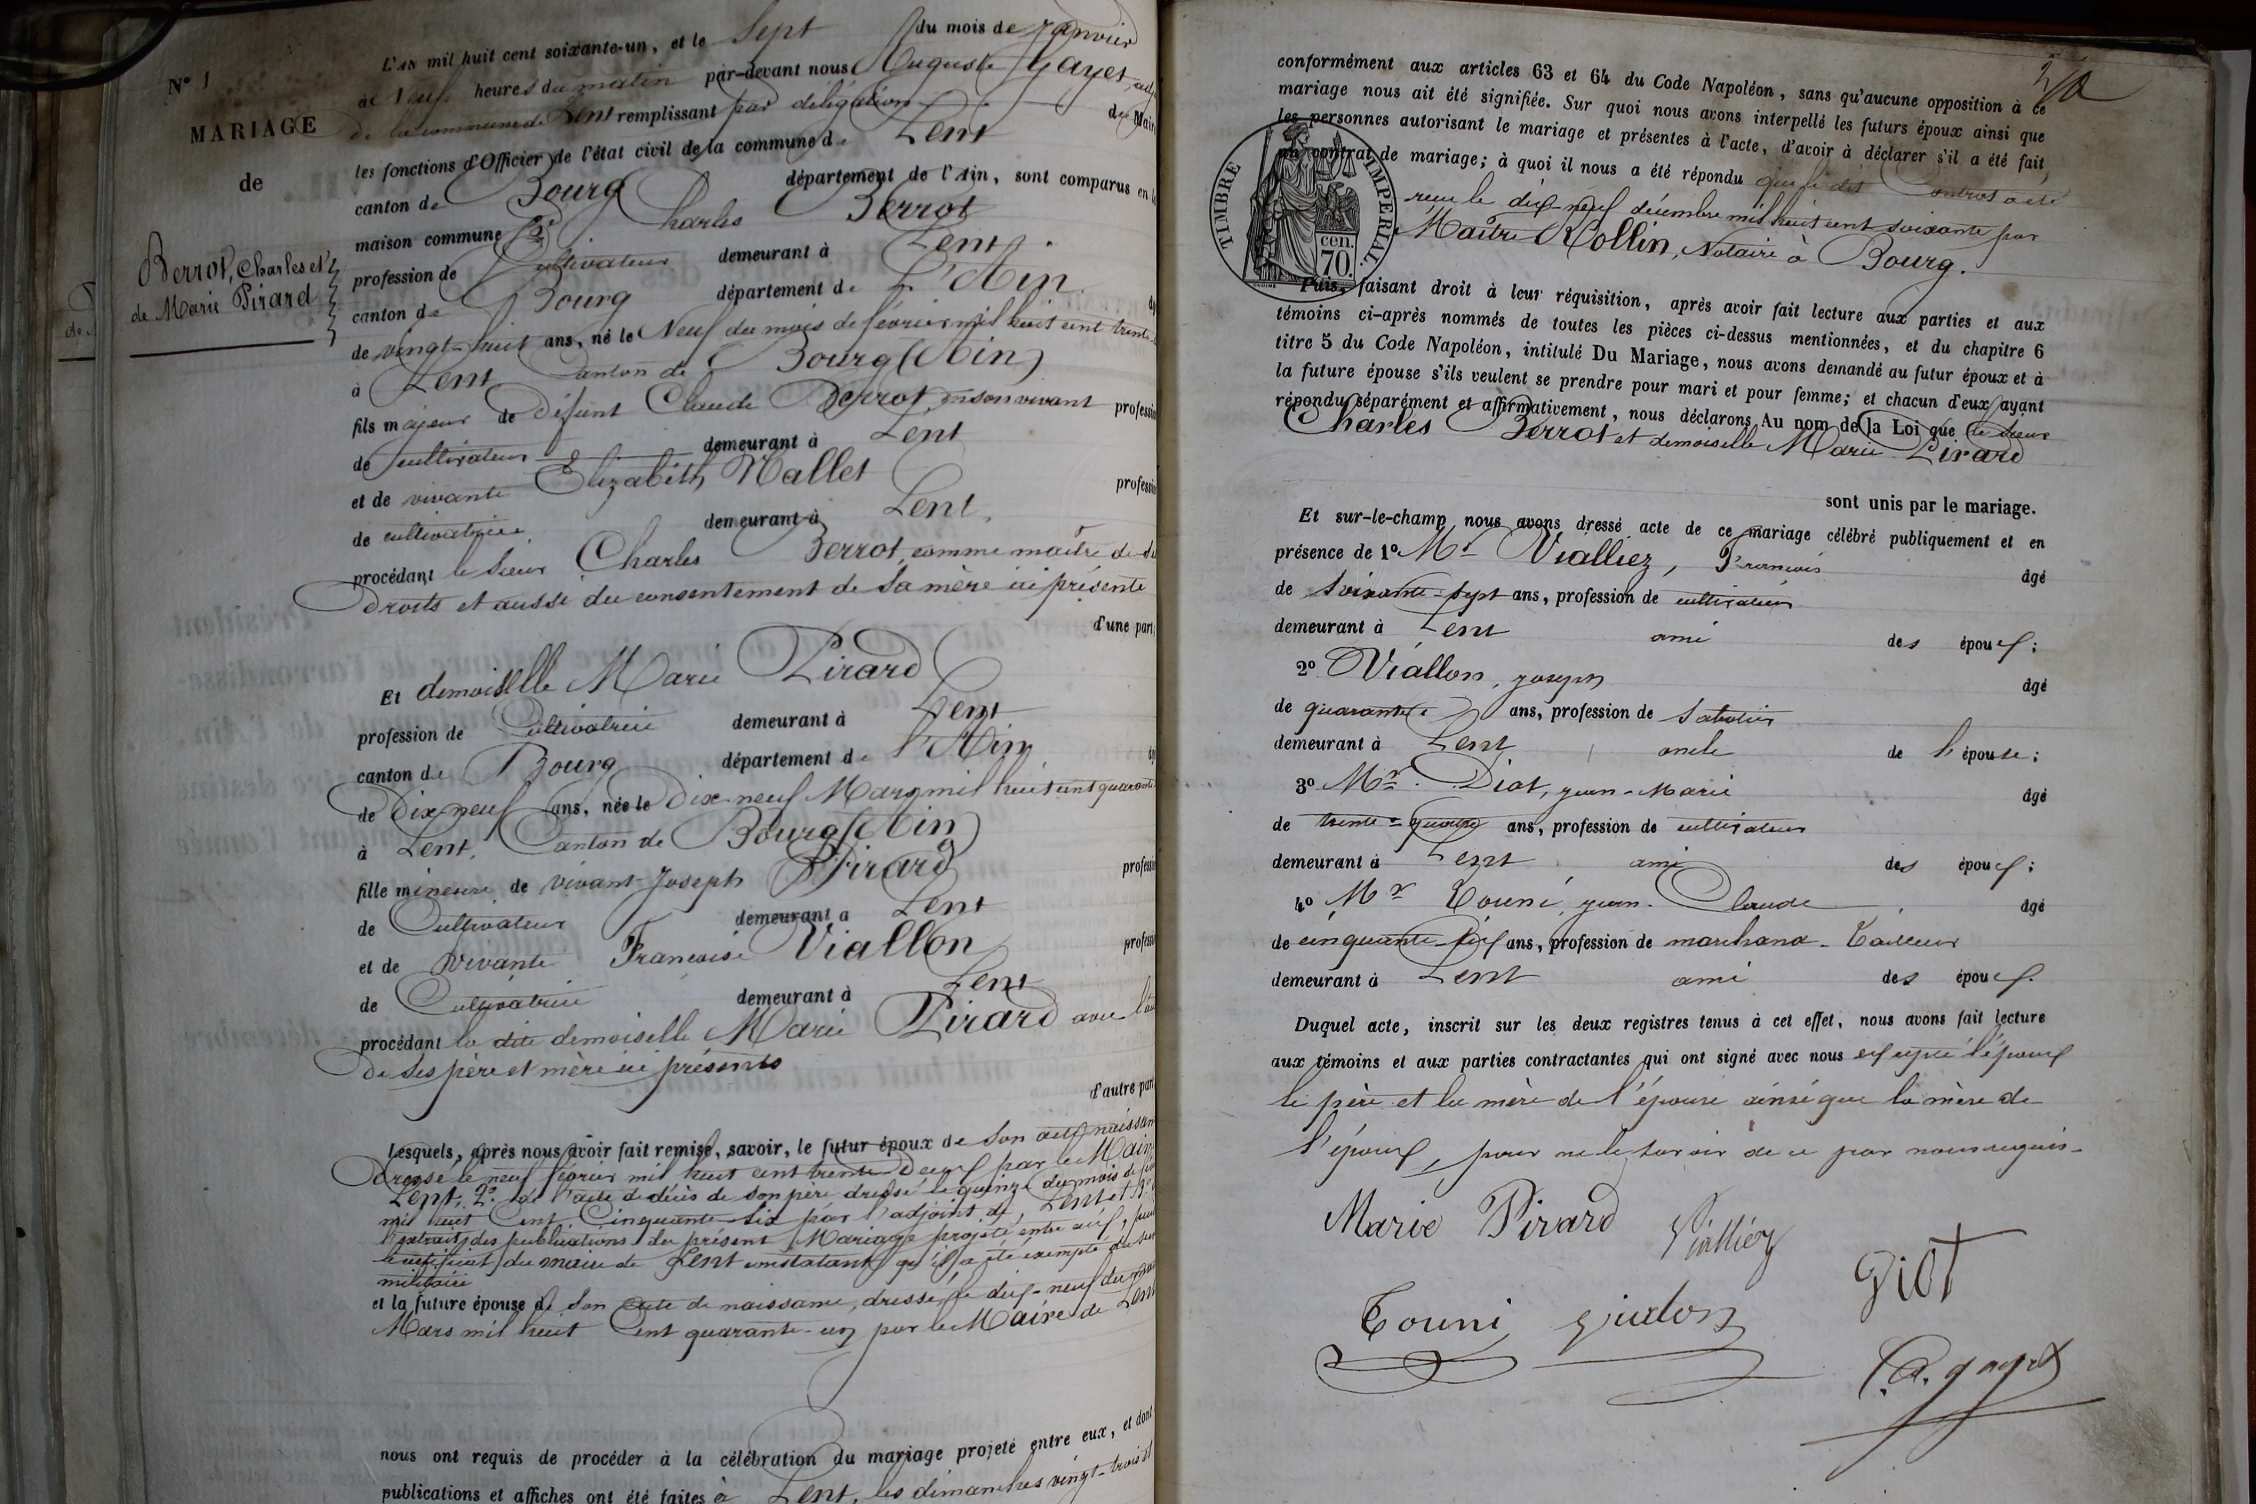 N° 1
MARIAGE
de
Berrot, Charles et
de Marie Pirard
L'AN mil huit cent soixante-un, et le Sept du mois de Janvier
à Neuf heures du matin par-devant nous Auguste Gayet, adj
de la commune de Lent remplissant par délégation du Maire
les fonctions d'Officier de l'état civil de la commune de Lent
canton de Bourg département de l'Ain, sont comparus en la
maison commune Charles Berrot
profession de Cultivateur demeurant à Lent
canton de Bourg département de L'Ain
de vingt-huit ans, né le Neuf du mois de février mil huit cent trente
à Lent Canton de Bourg (Ain)
fils majeur de défunt Claude Berrot, en son vivant profession
de cultivateur demeurant à Lent
et de vivante Elizabeth Nallet profession
de cultivatrice demeurant à Lent
procédant le Sieur Charles Berrot, comme maître de
Droits et aussi du consentement de Sa mère ici présente
d'une part,
Et demoiselle Marie Pirard
profession de Cultivatrice demeurant à Lent
canton de Bourg département de l'Ain
de Dix-neuf ans, née le Dix-neuf Mars mil huit cent quarante
à Lent, Canton de Bourg (Ain)
fille mineure de vivant Joseph Pirard profession
de Cultivateur demeurant à Lent
et de Vivante Francoise Viallon profession
de Cultivatrice demeurant à Lent
procédant la dite demoiselle Marie Pirard avec
De Ses père et mère ici présents
d'autre part
Lesquels, après nous avoir fait remise, savoir, le futur époux de Son acte naissan
Dressé le neuf février mil huit cent trente par le Maire
Lent, 2° de l'acte de décès de Son père dressé le quinze du mois de
mil huit Cent Cinquante-Six par l'adjoint de Lent et 3°
l'extrait des publications du présent Mariage projeté entre eux,
le certificat du maire de Lent constatant qu'il a été exempté du
militaire
et la future épouse de Son acte de naissance, dressé le dix-neuf du mois
Mars mil huit Cent quarante-un par le Maire de Lent
nous ont requis de procéder à la célébration du mariage projeté entre eux, et dont
publications et affiches ont été faites à Lent, les dimanches vingt-trois et
conformément aux articles 63 et 64 du Code Napoléon, sans qu'aucune opposition à ce
mariage nous ait été signifiée. Sur quoi nous avons interpellé les futurs époux ainsi que
les personnes autorisant le mariage et présentes à l'acte, d'avoir à déclarer s'il a été fait
un contrat de mariage; à quoi il nous a été répondu que le dit Contrat a été
recu le dix-neuf décembre mil huit cent soixante par
Maître Rollin, Notaire à Bourg.
TIMBRE IMPERIAL
cen.
70.
Puis, faisant droit à leur réquisition, après avoir fait lecture aux parties et aux
témoins ci-après nommés de toutes les pièces ci-dessus mentionnées, et du chapitre 6
titre 5 du Code Napoléon, intitulé Du Mariage, nous avons demandé au futur époux et à
la future épouse s'ils veulent se prendre pour mari et pour femme; et chacun d'eux ayant
répondu séparément et affirmativement, nous déclarons Au nom de la Loi que le Sieur
Charles Berrot et demoiselle Marie Pirard
sont unis par le mariage.
Et sur-le-champ nous avons dressé acte de ce mariage célébré publiquement et en
présence de 1° Mr Vialliez, Francois âgé
de Soixante-sept ans, profession de cultivateur
demeurant à Lent ami des époux;
2° Viallon, Joseph âgé
de quarante ans, profession de Sabotier
demeurant à Lent oncle de l'épouse;
3° Mr Diot, Jean-Marie âgé
de trente-quatre ans, profession de cultivateur
demeurant à Lent ami des époux;
4° Mr Touni, Jean-Claude âgé
de cinquante-six ans, profession de marchand-Tailleur
demeurant à Lent ami des époux.
Duquel acte, inscrit sur les deux registres tenus à cet effet, nous avons fait lecture
aux témoins et aux parties contractantes qui ont signé avec nous excepté l'époux
le père et la mère de l'épouse ainsi que la mère de
l'époux, pour ne le savoir de ce par nous requis.
Marie Pirard Vialliez
Diot
Touni Viallon
C. A. gayet